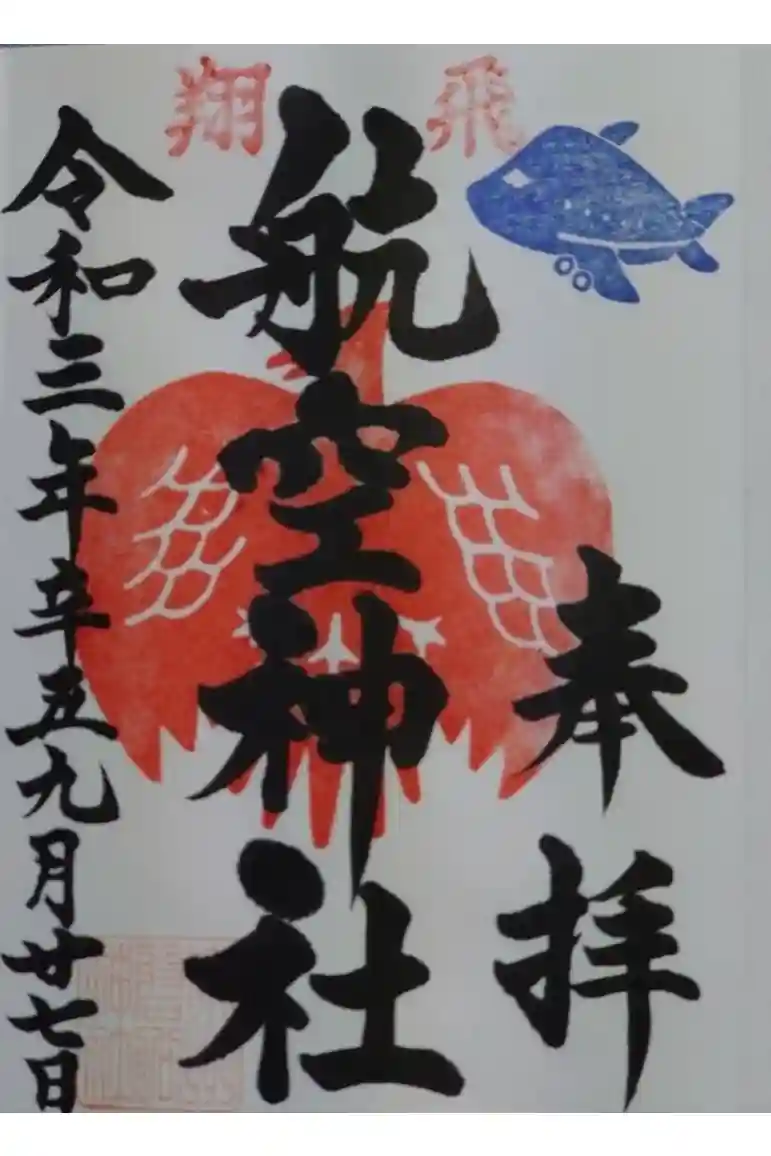 飛翔
奉拝
航空神社
令和三年辛五九月廿七日